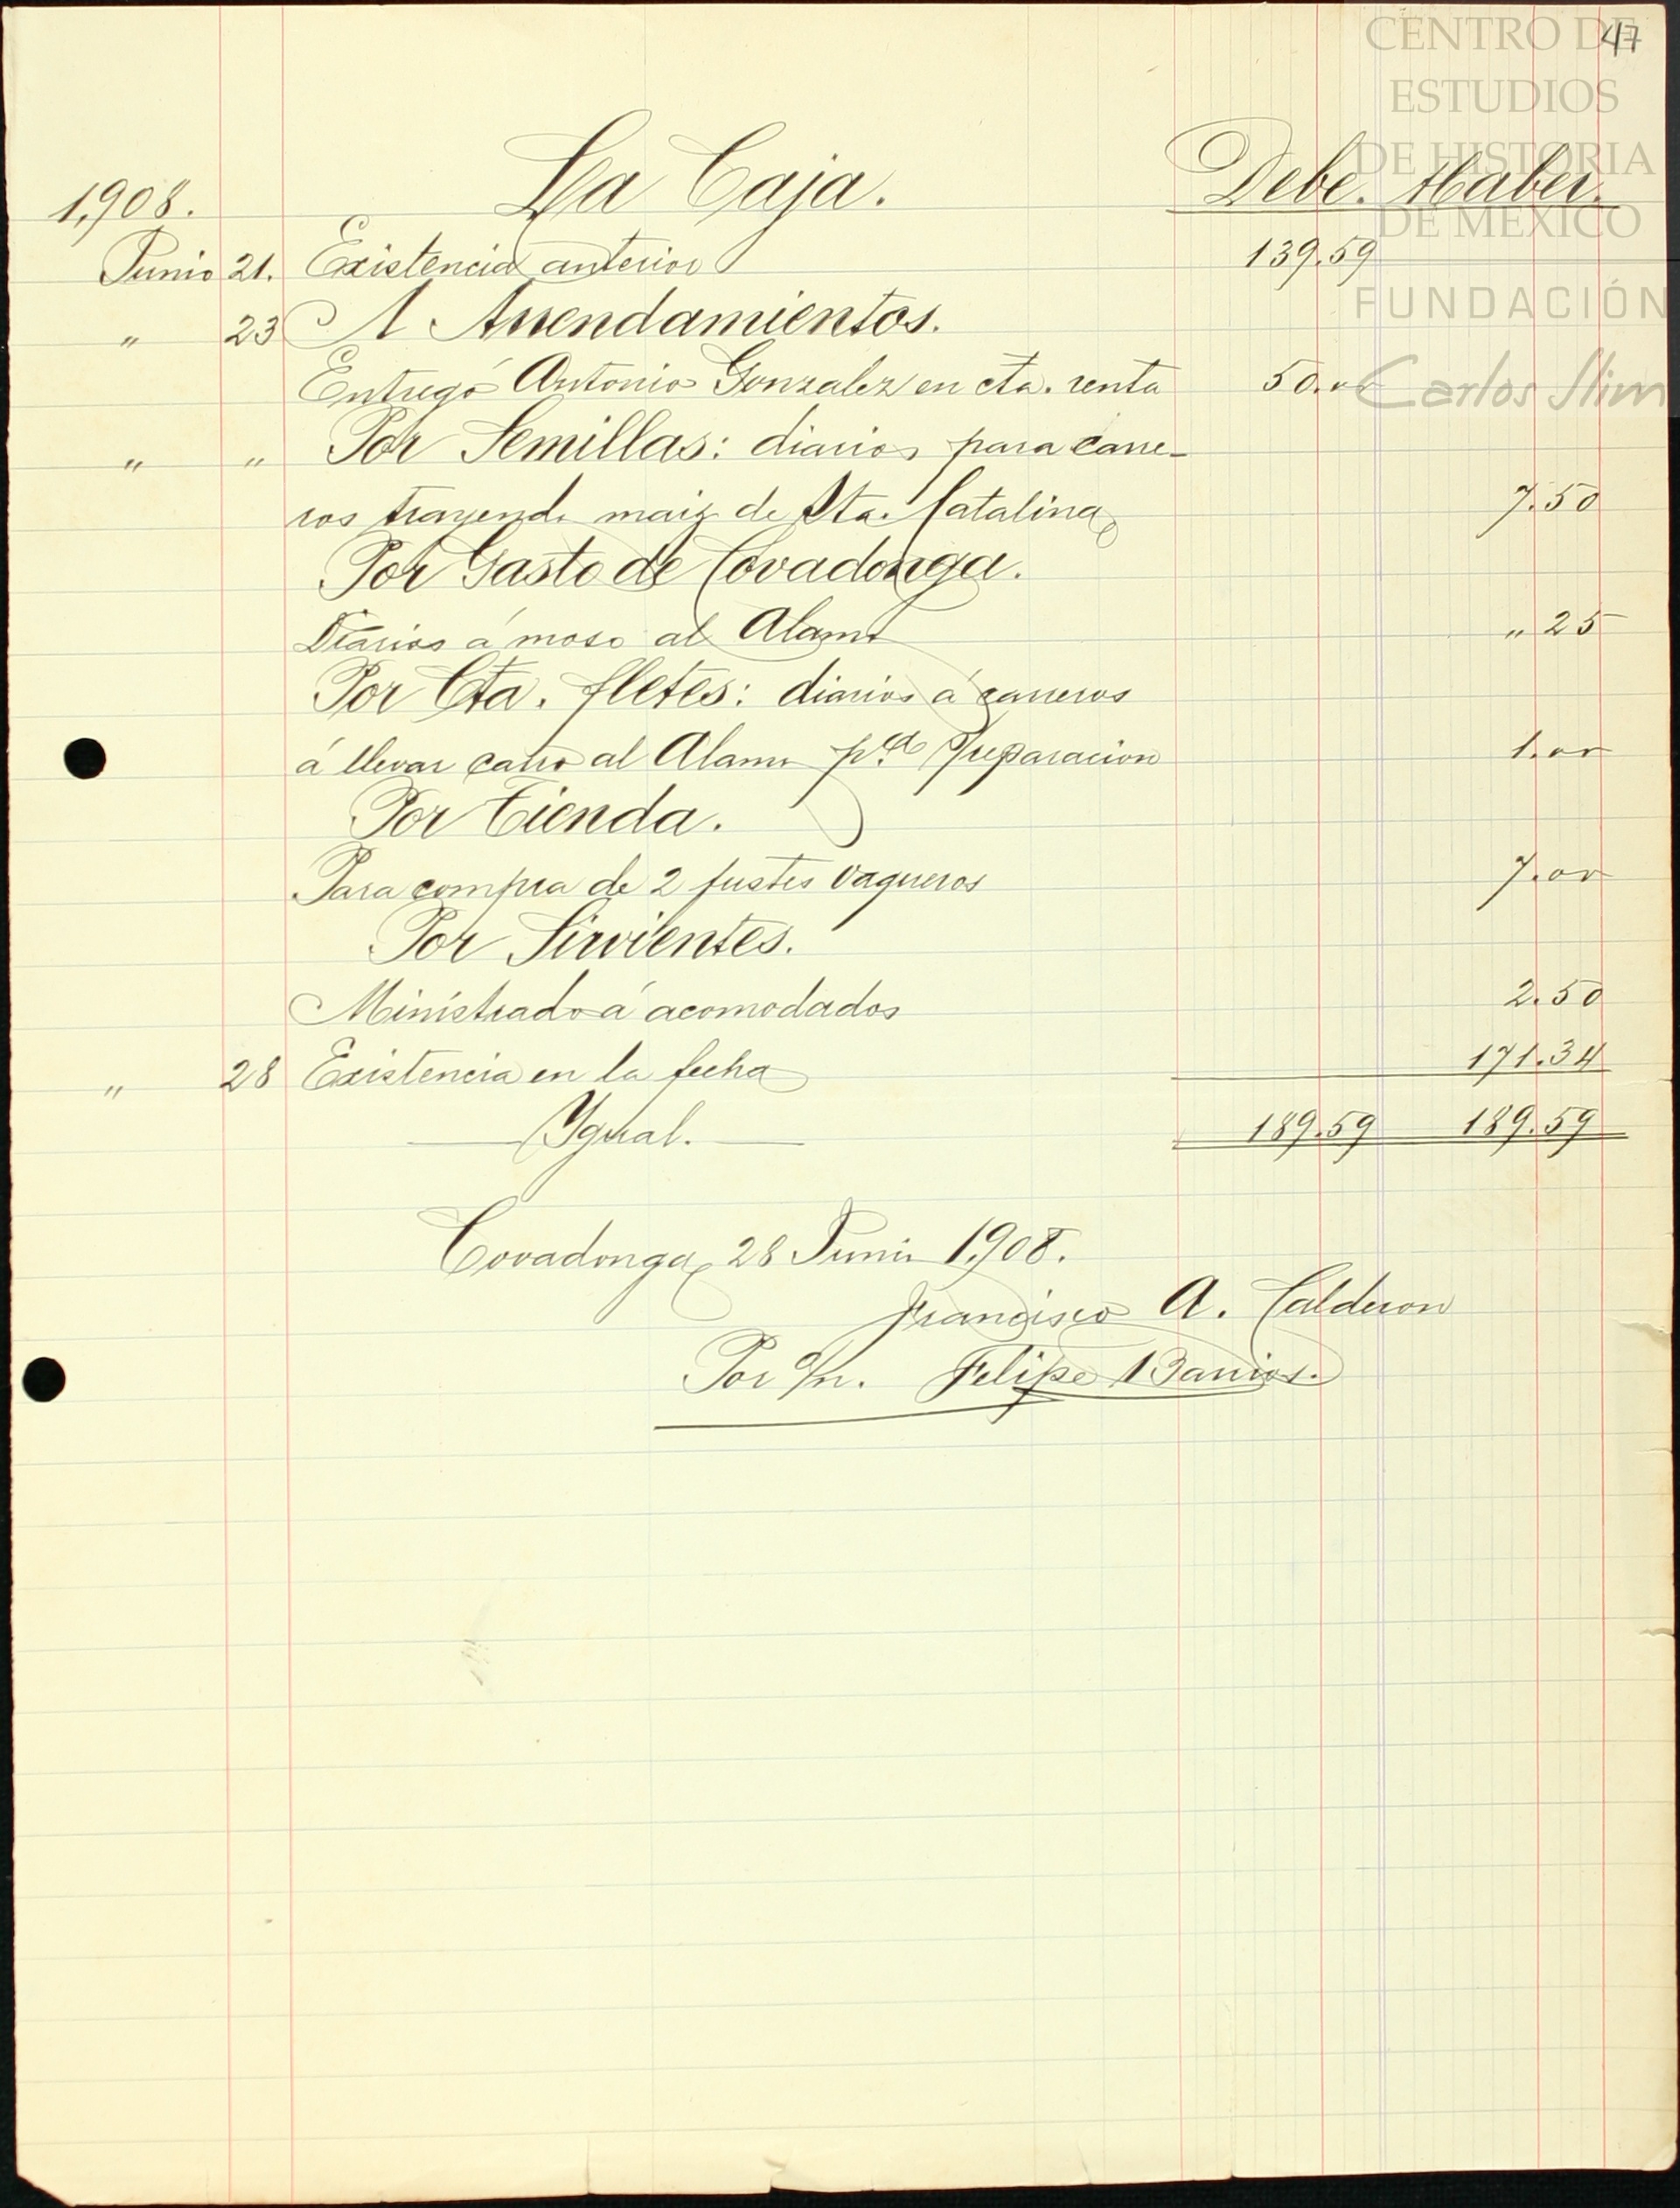 47
CENTRO DE
ESTUDIOS
DE HISTORIA
DE MÉXICO
FUNDACIÓN
Carlos Slim
1,908. La Caja. Debe. Haber.
Junio 21. Existencia anterior 139.59
" 23 A Arrendamientos.
Entregó Antonio Gonzalez en cta. renta 50.00
" " Por Semillas: diarios para carre-
ros trayendo maiz de Sta. Catalina 7.50
Por Gasto de Covadonga.
Diarios á moso al Alamo " 25
Por Cta. fletes: diarios á carreros
á llevar carro al Alamo pª. Preparacion 1.00
Por Tienda.
Para compra de 2 fustes vaqueros 7.00
Por Sirvientes.
Ministrado á acomodados 2.50
" 28 Existencia en la fecha 171.34
Ygual. 189.59 189.59
Covadonga, 28 Junio 1.908.
Francisco A. Calderon
Por o/n. Felipe Barrios.